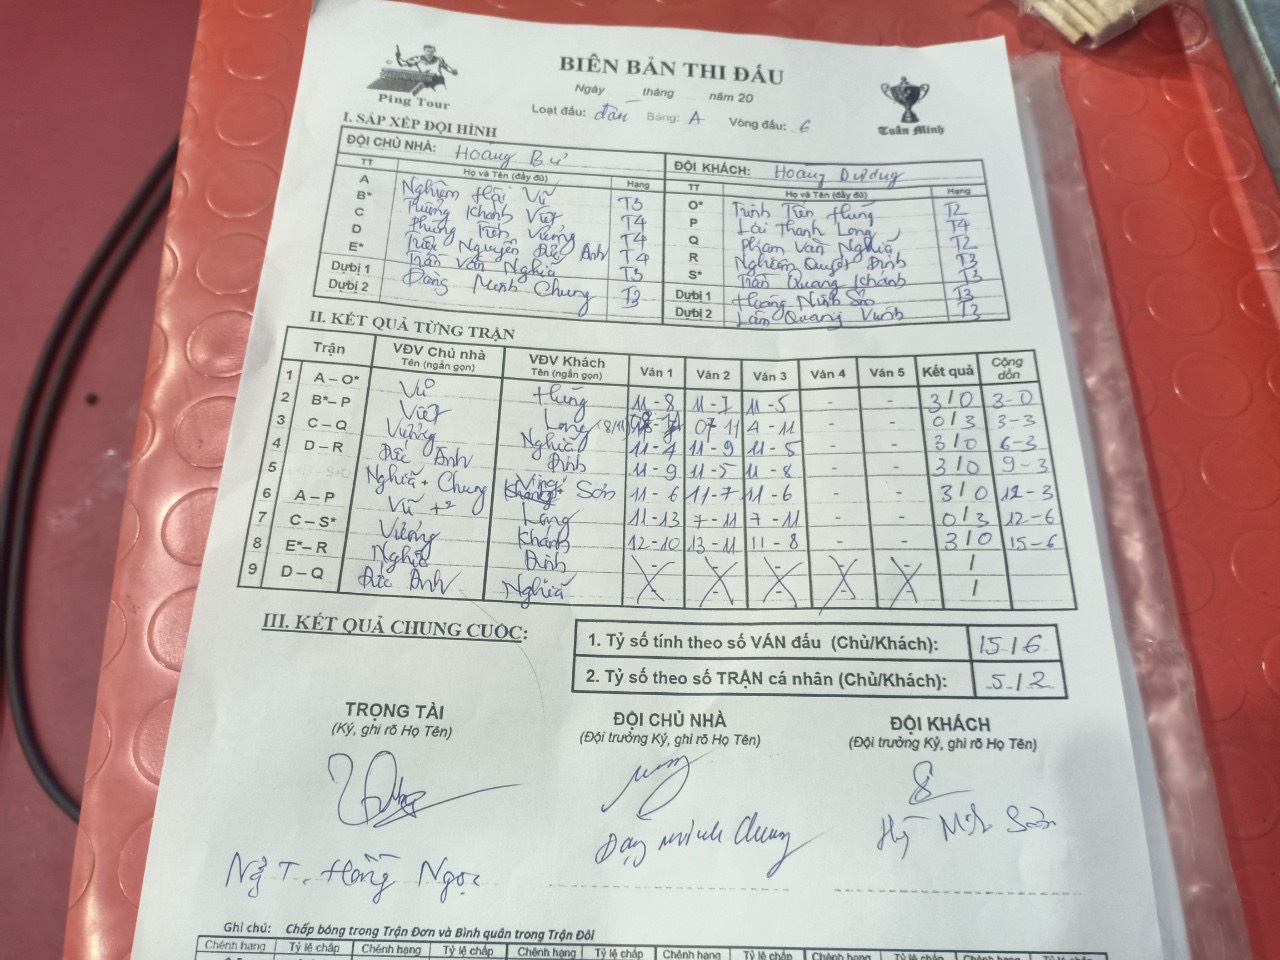 Ping Tour
BIÊN BẢN THI ĐẤU
Ngày tháng năm 20
Loạt đấu: đấu Bảng: A Vòng đấu: 6
Tuấn Minh
I. SẮP XẾP ĐỘI HÌNH
ĐỘI CHỦ NHÀ: Hoàng Bư ĐỘI KHÁCH: Hoàng Dương
TT Họ và Tên (đầy đủ) Hạng TT Họ và Tên (đầy đủ) Hạng
A Nghiêm Hải Vũ T3 O* Trịnh Tiến Hùng T2
B* Khánh Việt T4 P Lài Thanh Long T4
C Phùng Tiến Vương T4 Q Phạm Văn Nghĩa T2
D Trần Nguyễn Đức Anh T4 R Nghiêm Quyết Định T3
E* Trần Văn Nghĩa T3 S* Trần Quang Khánh T3
Dựbị 1 Đặng Minh Chung T3 Dựbị 1 Hoàng Minh Sơn T3
Dựbị 2 Dựbị 2 Lâm Quang Vinh T3
II. KẾT QUẢ TỪNG TRẬN
Trận VĐV Chủ nhà Tên (ngắn gọn) VĐV Khách Tên (ngắn gọn) Ván 1 Ván 2 Ván 3 Ván 4 Ván 5 Kết quả Cộng dồn
1 A – O* Vũ Hùng 11 - 8 11 - 7 11 - 5 - - 3/0 3-0
2 B* – P Việt Long (8/11) 07 11 4 - 11 - - 0/3 3-3
3 C – Q Vương Nghĩa 11 - 4 11 - 9 11 - 5 - - 3/0 6-3
4 D – R Đức Anh Định 11 - 9 11 - 5 11 - 8 - - 3/0 9-3
5 Nghĩa + Chung Vinh + Sơn 11 - 6 11 - 7 11 - 6 - - 3/0 12-3
6 A – P Vũ +2 Long 11 - 13 7 - 11 7 - 11 - - 0/3 12-6
7 C – S* Vương Khánh 12 - 10 13 - 11 11 - 8 - - 3/0 15-6
8 E* – R Nghĩa Định - - - - - /
9 D – Q Đức Anh Nghĩa - - - - - /
III. KẾT QUẢ CHUNG CUỘC:
1. Tỷ số tính theo số VÁN đấu (Chủ/Khách): 15/6
2. Tỷ số theo số TRẬN cá nhân (Chủ/Khách): 5/2
TRỌNG TÀI ĐỘI CHỦ NHÀ ĐỘI KHÁCH
(Ký, ghi rõ Họ Tên) (Đội trưởng Ký, ghi rõ Họ Tên) (Đội trưởng Ký, ghi rõ Họ Tên)
Ng T. Hồng Ngọc Đặng Minh Chung Sơn
Ghi chú: Chấp bóng trong Trận Đơn và Bình quân trong Trận Đôi
Chênh hạng Tỷ lệ chấp Chênh hạng Tỷ lệ chấp Chênh hạng Tỷ lệ chấp Chênh hạng Tỷ lệ chấp Chênh hạng Tỷ lệ chấp